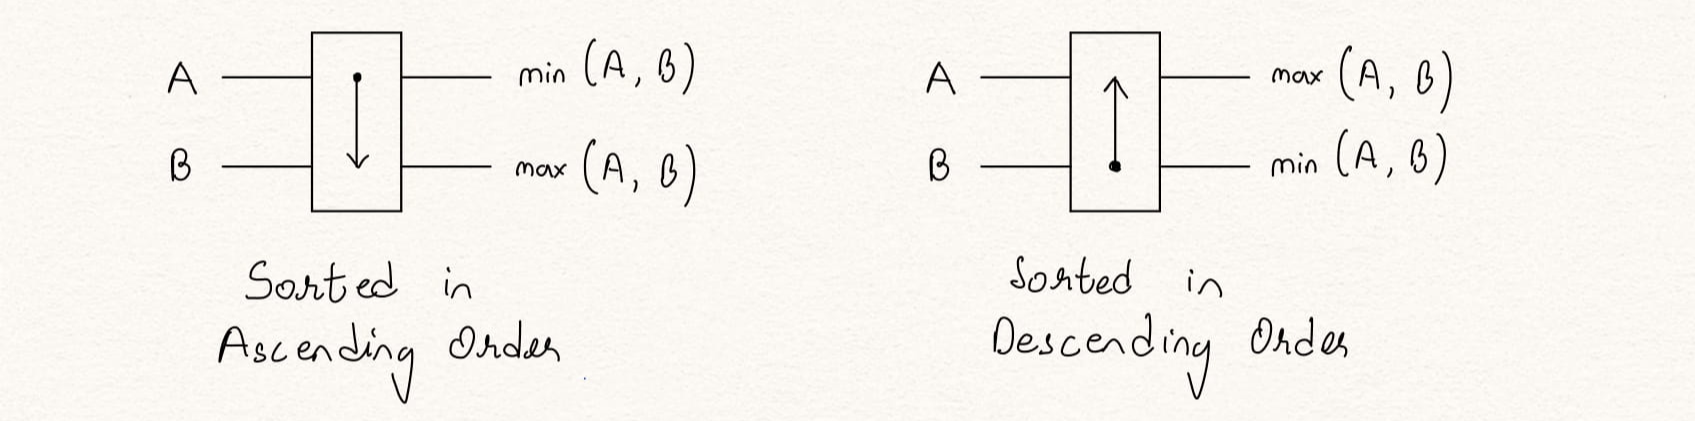 A min (A, B)
B max (A, B)
Sorted in
Ascending Order
A max (A, B)
B min (A, B)
Sorted in
Descending Order